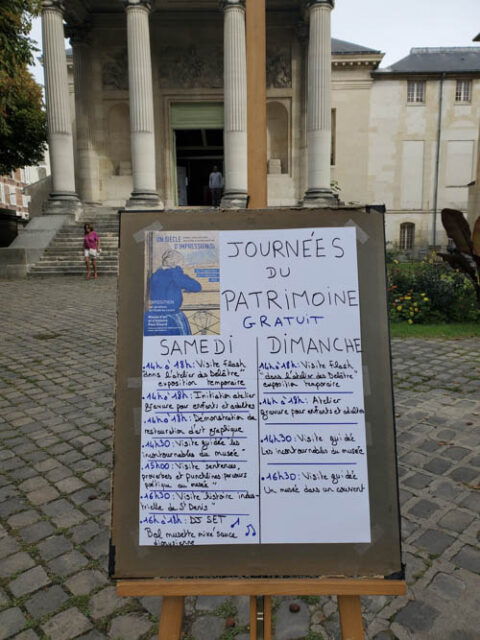 UN SIÈCLE
D'IMPRESSIONS
EXPOSITION
JOURNÉES
DU
PATRIMOINE
GRATUIT
SAMEDI
14h à 18h: Visite Flash
"dans l'atelier des Delâtre"
exposition temporaire
14h à 18h: Initiation atelier
gravure pour enfants et adultes
14h à 18h: Démonstration de
restauration d'art graphique
14H30: Visite guidée "les
incontournables du musée"
15H00: Visite sentences,
proverbes et punchlines parcours
poétique au musée"
16H30: Visite "histoire indus-
trielle de St Denis"
16H à 18H: DJ SET
Bal musette mixé sauce
dionysienne
DIMANCHE
14H à 18H: Visite Flash
"dans l'atelier des Delâtre"
exposition temporaire
14H à 18H: Atelier
gravure pour enfants et adultes
14H30: Visite guidée
Les incontournables du musée
16H30: Visite guidée
Un musée dans un couvent